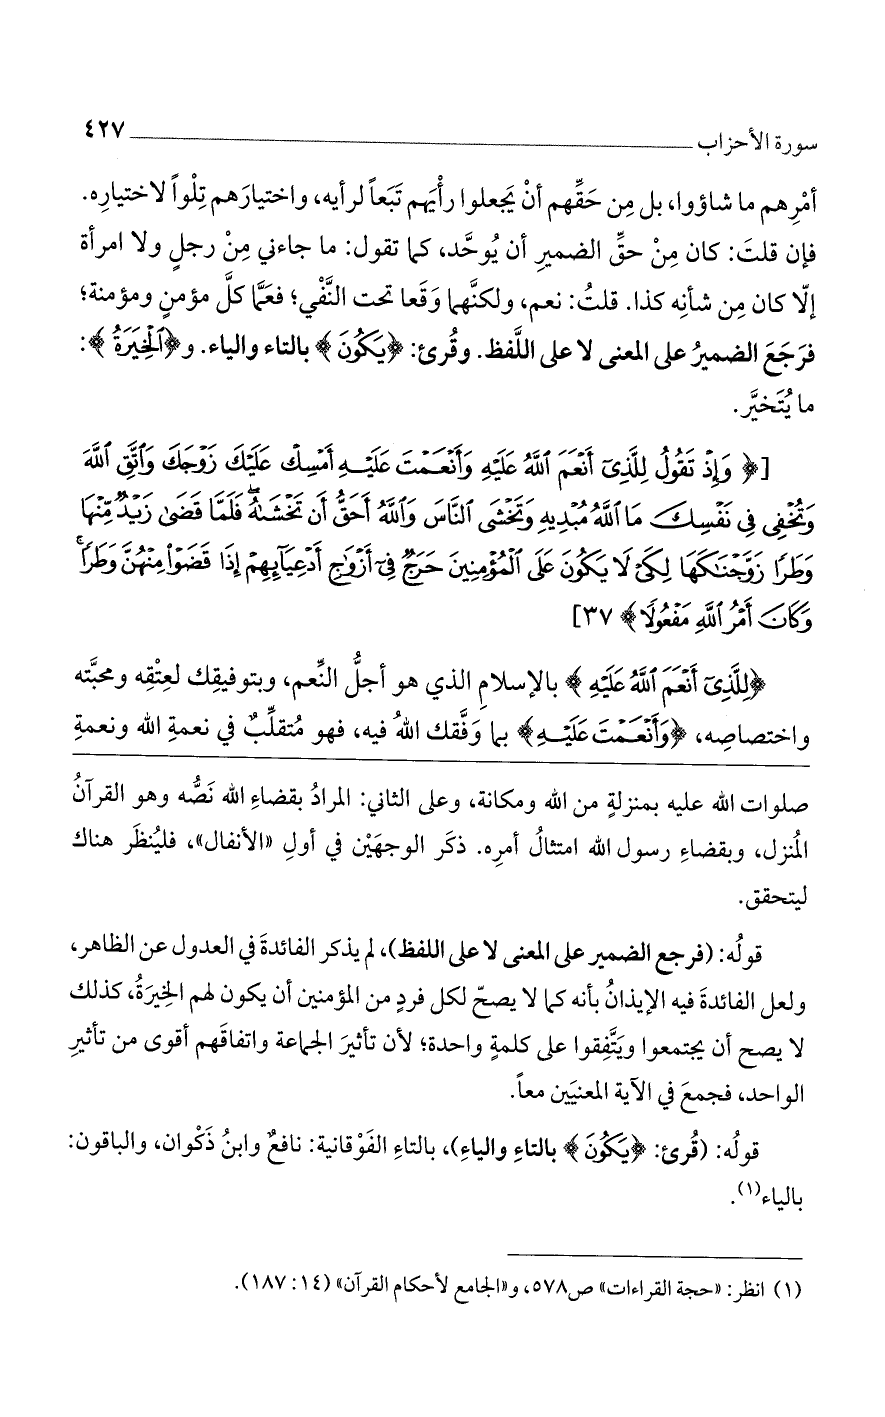 سورة الأحزاب ٤٢٧
أمْرِهم ما شاؤوا، بل مِن حَقِّهم أنْ يَجعلوا رأْيَهم تَبَعاً لرأيه، واختيارَهم تِلْواً لاختيارِه.
فإن قلتَ: كان مِنْ حقِّ الضميرِ أن يُوحَّد، كما تقول: ما جاءني مِنْ رجلٍ ولا امرأة
إلّا كان مِن شأنِه كذا. قلتُ: نعم، ولكنَّهما وَقَعا تحت النَّفْي؛ فعَمَّا كلَّ مؤمنٍ ومؤمنة؛
فرَجَعَ الضميرُ على المعنى لا على اللَّفظ. وقُرئ: ﴿يَكُونَ﴾ بالتاء والياء. و﴿ٱلْخِيَرَةُ﴾:
ما يُتَخيَّر.
[﴿ وَإِذْ تَقُولُ لِلَّذِىٓ أَنْعَمَ ٱللَّهُ عَلَيْهِ وَأَنْعَمْتَ عَلَيْهِ أَمْسِكْ عَلَيْكَ زَوْجَكَ وَٱتَّقِ ٱللَّهَ
وَتُخْفِى فِى نَفْسِكَ مَا ٱللَّهُ مُبْدِيهِ وَتَخْشَى ٱلنَّاسَ وَٱللَّهُ أَحَقُّ أَن تَخْشَىٰهُ ۖ فَلَمَّا قَضَىٰ زَيْدٌ مِّنْهَا
وَطَرًا زَوَّجْنَٰكَهَا لِكَىْ لَا يَكُونَ عَلَى ٱلْمُؤْمِنِينَ حَرَجٌ فِىٓ أَزْوَٰجِ أَدْعِيَآئِهِمْ إِذَا قَضَوْا۟ مِنْهُنَّ وَطَرًا ۚ
وَكَانَ أَمْرُ ٱللَّهِ مَفْعُولًا﴾ ٣٧]
﴿لِلَّذِىٓ أَنْعَمَ ٱللَّهُ عَلَيْهِ ﴾ بالإسلامِ الذي هو أجلُّ النِّعم، وبتوفيقِك لعِتْقِه ومحبَّته
واختصاصِه، ﴿وَأَنْعَمْتَ عَلَيْهِ﴾ بما وَفَّقك اللهُ فيه، فهو مُتقلِّبٌ في نعمةِ الله ونعمةِ
صلوات الله عليه بمنزلةٍ من الله ومكانة، وعلى الثاني: المرادُ بقضاءِ الله نَصُّه وهو القرآنُ
المُنزل، وبقضاءِ رسول الله امتثالُ أمرِه. ذكَر الوجهَيْن في أولِ «الأنفال»، فليُنظَر هناك
ليتحقق.
قولُه: (فرجع الضمير على المعنى لا على اللفظ)، لم يذكر الفائدةَ في العدول عن الظاهر،
ولعل الفائدةَ فيه الإيذانُ بأنه كما لا يصحّ لكل فردٍ من المؤمنين أن يكون لهم الخِيرَةُ، كذلك
لا يصح أن يجتمعوا ويَتَّفِقوا على كلمةٍ واحدة؛ لأن تأثيرَ الجماعة واتفاقَهم أقوى من تأثيرِ
الواحد، فجمعَ في الآية المعنيَين معاً.
قولُه: (قُرئ: ﴿يَكُونَ﴾ بالتاءِ والياءِ)، بالتاءِ الفَوْقانية: نافعٌ وابنُ ذَكْوان، والباقون:
بالياء(١).
(١) انظر: «حجة القراءات» ص٥٧٨، و«الجامع لأحكام القرآن» (١٤: ١٨٧).